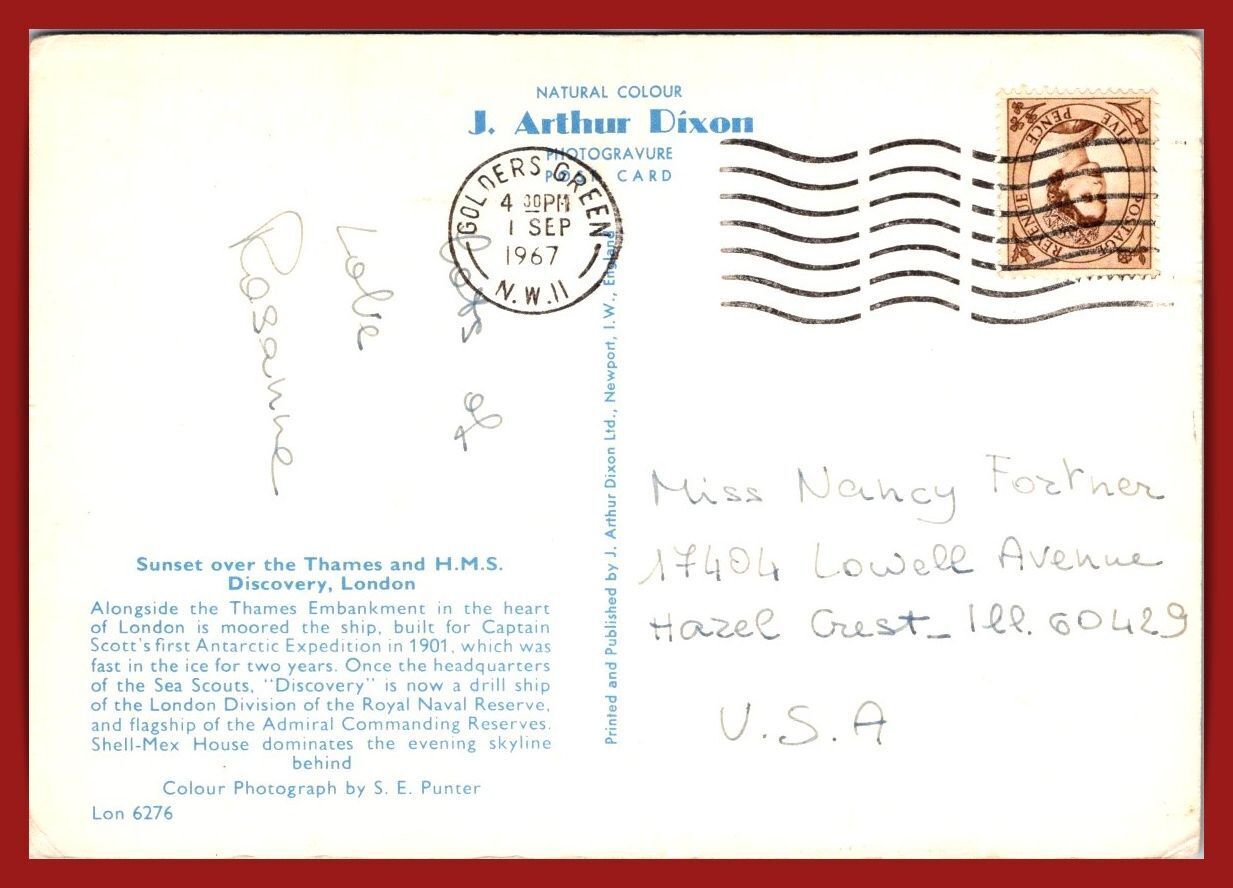 NATURAL COLOUR
J. Arthur Dixon
PHOTOGRAVURE
POST CARD
GOLDERS GREEN
4 30PM
1 SEP
1967
N.W.11
POSTAGE REVENUE
FIVE PENCE
Lots of
Love
Rosanne
Printed and Published by J. Arthur Dixon Ltd., Newport, I.W., England
Miss Nancy Fortner
17404 Lowell Avenue
Hazel Crest_ Ill. 60429
U.S.A
Sunset over the Thames and H.M.S.
Discovery, London
Alongside the Thames Embankment in the heart
of London is moored the ship, built for Captain
Scott's first Antarctic Expedition in 1901, which was
fast in the ice for two years. Once the headquarters
of the Sea Scouts, "Discovery" is now a drill ship
of the London Division of the Royal Naval Reserve,
and flagship of the Admiral Commanding Reserves.
Shell-Mex House dominates the evening skyline
behind
Colour Photograph by S. E. Punter
Lon 6276